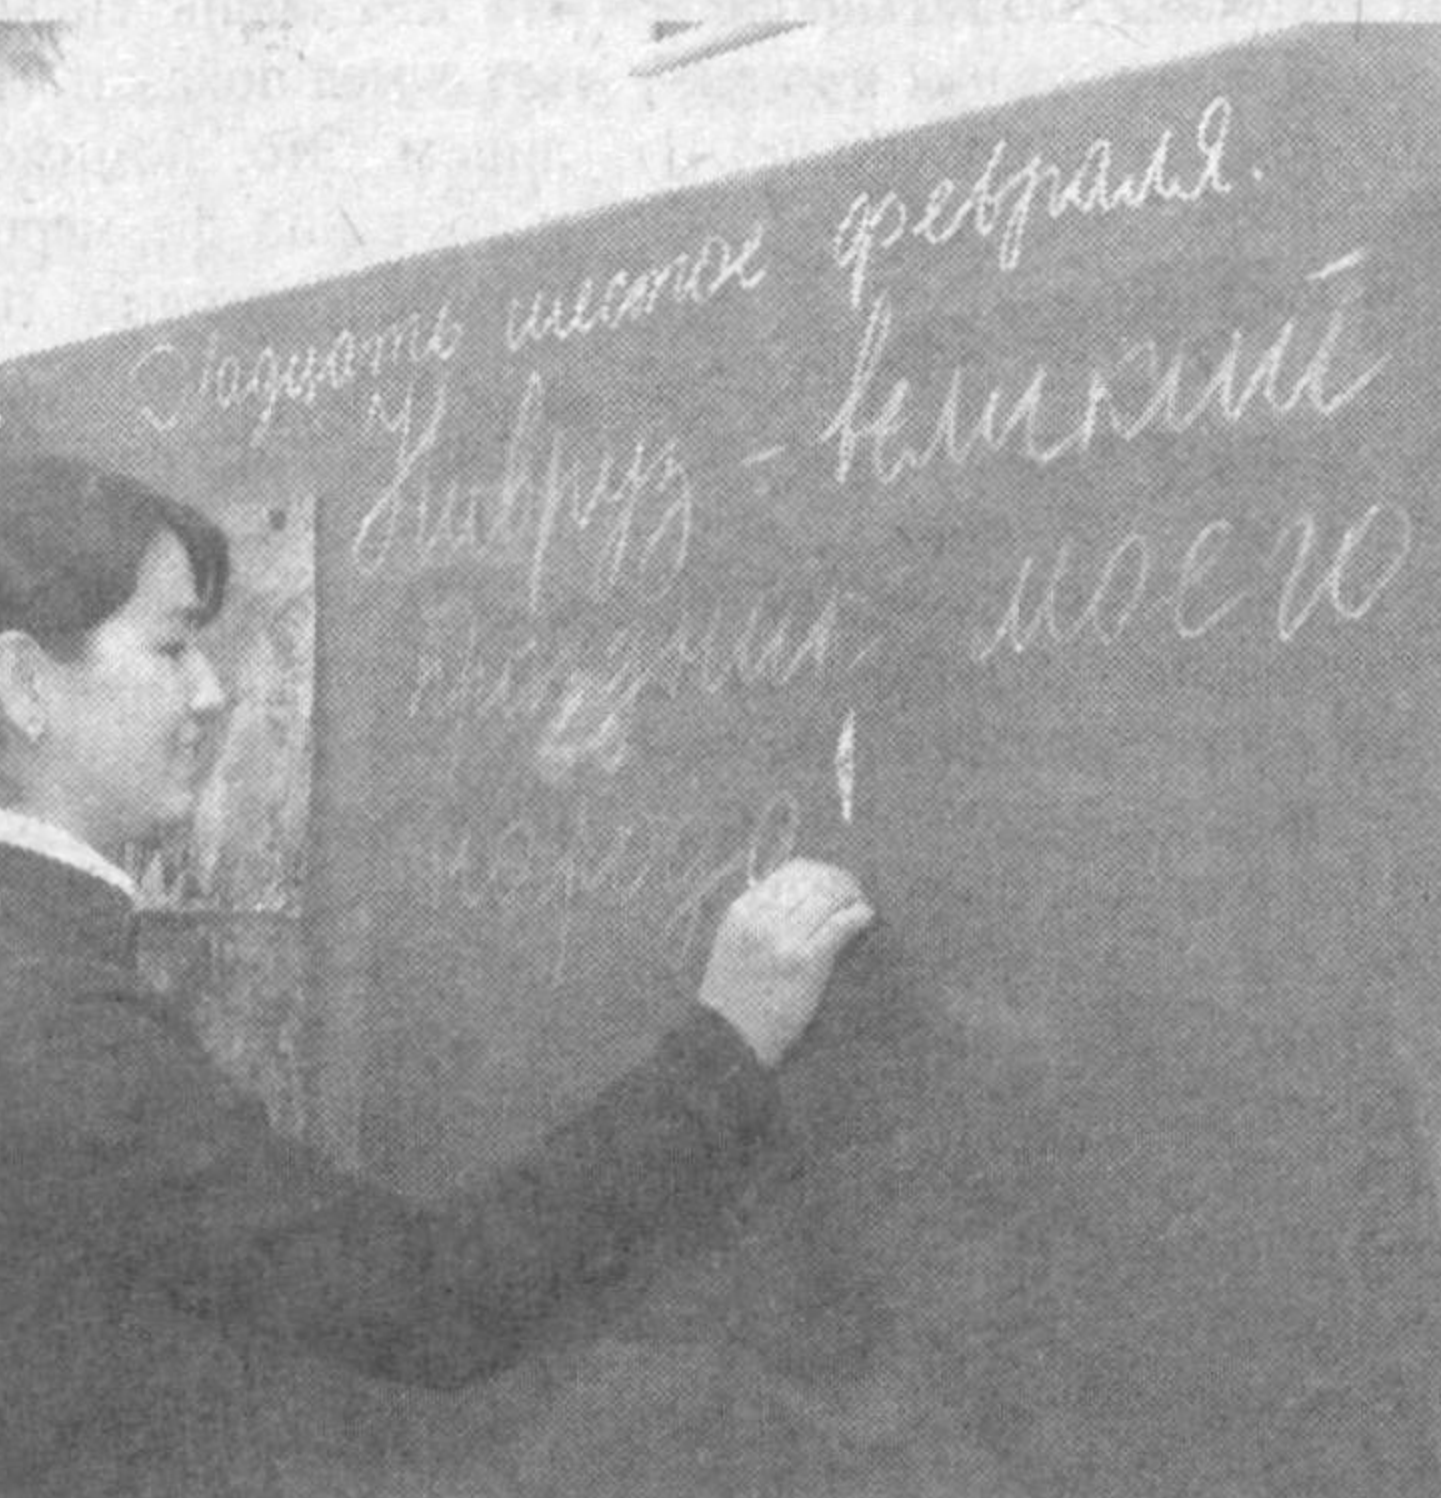 Двадцать шестое февраля.
Навруз - великий
праздник моего
народа!